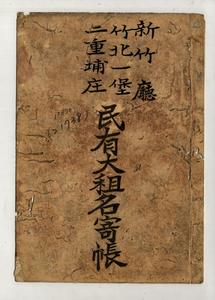 新竹廳
竹北一堡
二重埔庄
民有大租名寄帳